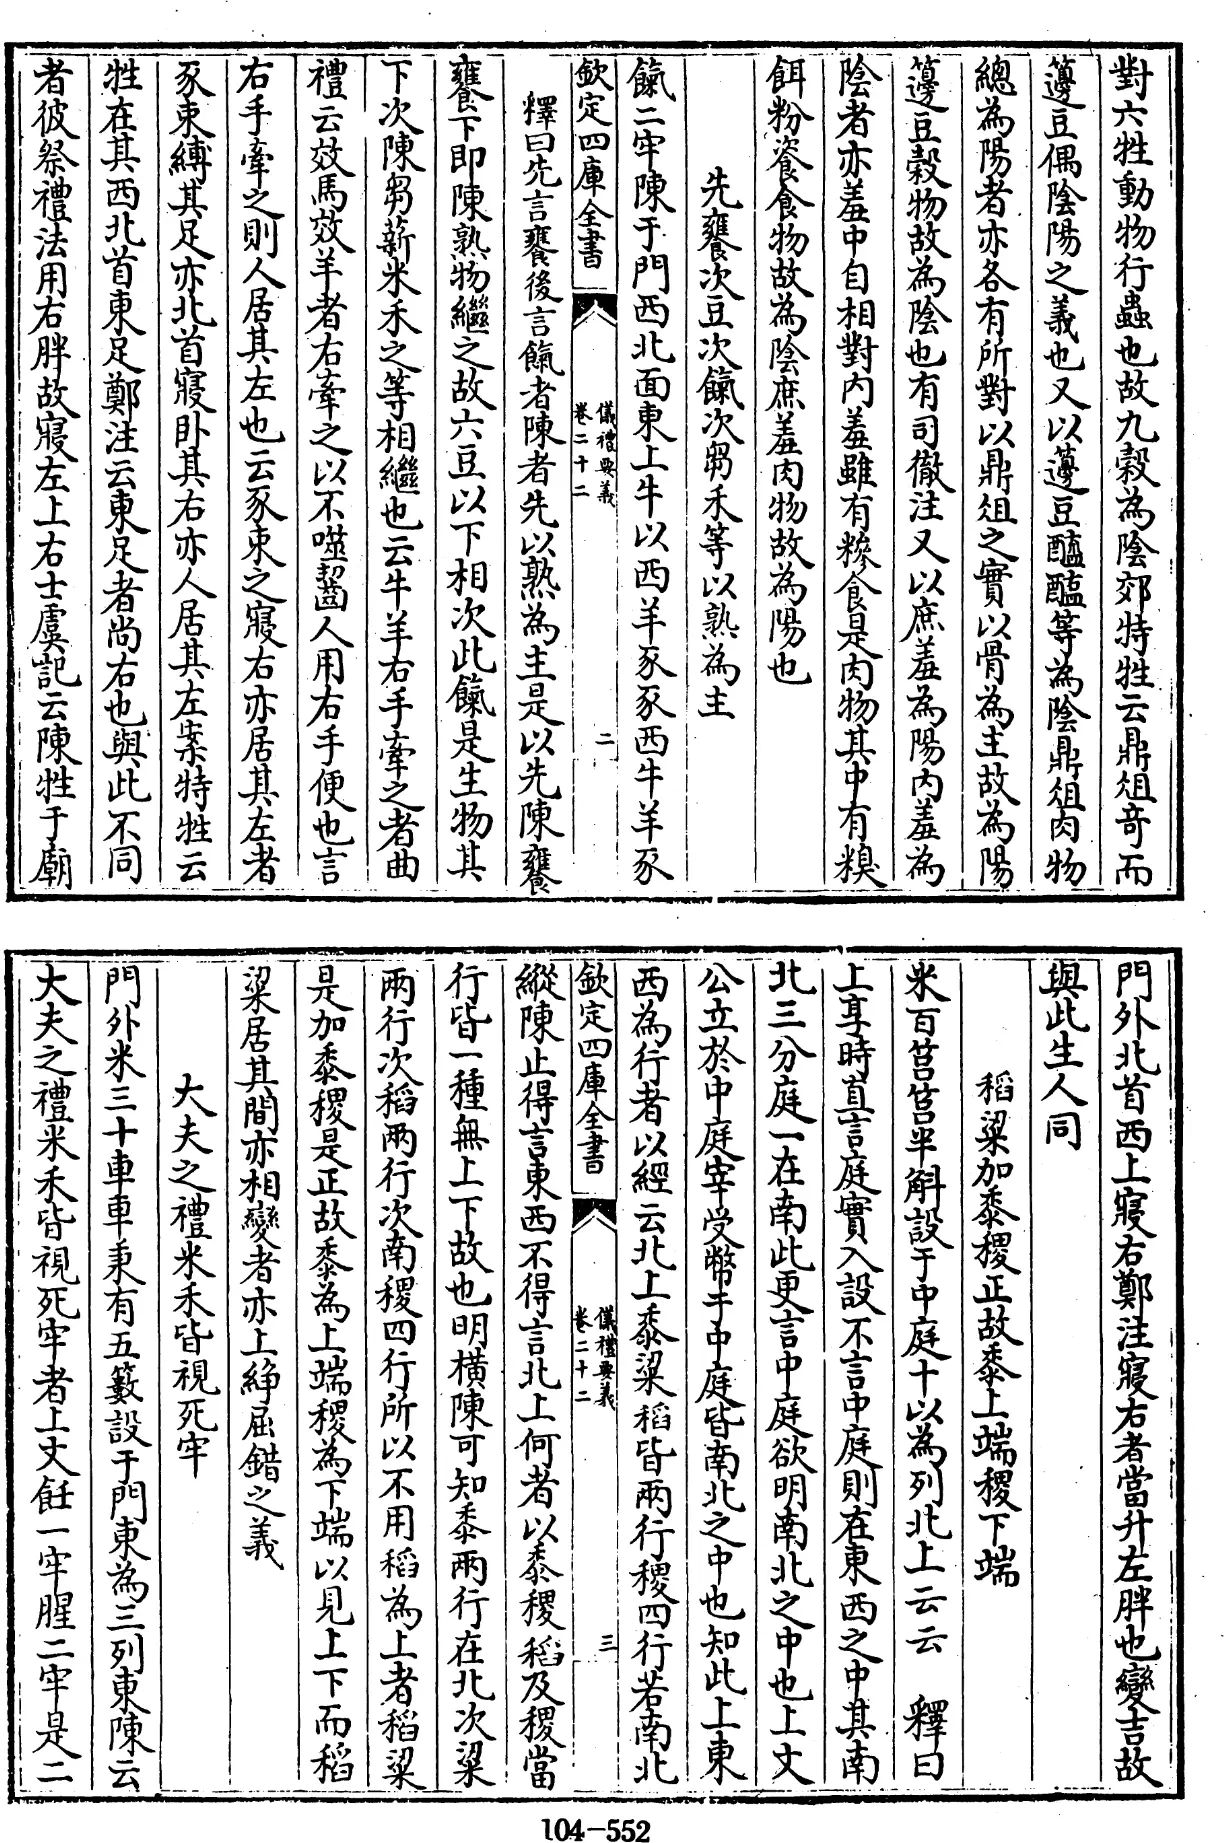 對六牲動物行蟲也故九穀為陰郊特牲云鼎俎竒而
籩豆偶陰陽之義也又以籩豆醯醢等為陰鼎俎肉物
總為陽者亦各有所對以鼎俎之實以骨為主故為陽
籩豆穀物故為陰也有司徹注又以庶羞為陽内羞為
陰者亦羞中自相對内羞雖有糝食是肉物其中有糗
餌粉餈食物故為陰庶羞肉物故為陽也
先饔次豆次餼次芻禾等以熟為主
餼二牢陳于門西北面東上牛以西羊豕豕西牛羊豕
欽定四庫全書
儀禮要義
卷二十二
二
釋曰先言饔後言餼者陳者先以熟為主是以先陳饔
饔下即陳熟物繼之故六豆以下相次此餼是生物其
下次陳芻薪米禾之等相繼也云牛羊右手牽之者曲
禮云效馬效羊者右牽之以不噬齧人用右手便也言
右手牽之則人居其左也云豕束之寢右亦居其左者
豕束縛其足亦北首寢卧其右亦人居其左案特牲云
牲在其西北首東足鄭注云東足者尚右也與此不同
者彼祭禮法用右胖故寢左上右士虞記云陳牲于廟
門外北首西上寢右鄭注寢右者當升左胖也變吉故
與此生人同
稻粱加黍稷正故黍上端稷下端
米百筥筥半斛設于中庭十以為列北上云云 釋曰
上享時直言庭實入設不言中庭則在東西之中其南
北三分庭一在南此更言中庭欲明南北之中也上文
公立於中庭宰受幣于中庭皆南北之中也知此上東
西為行者以經云北上黍粱稻皆兩行稷四行若南北
欽定四庫全書
儀禮要義
卷二十二
三
縱陳止得言東西不得言北上何者以黍稷稻及稷當
行皆一種無上下故也明横陳可知黍兩行在北次粱
兩行次稻兩行次南稷四行所以不用稻為上者稻粱
是加黍稷是正故黍為上端稷為下端以見上下而稻
粱居其間亦相變者亦上綪屈錯之義
大夫之禮米禾皆視死牢
門外米三十車車秉有五籔設于門東為三列東陳云
大夫之禮米禾皆視死牢者上文飪一牢腥二牢是二
104-552